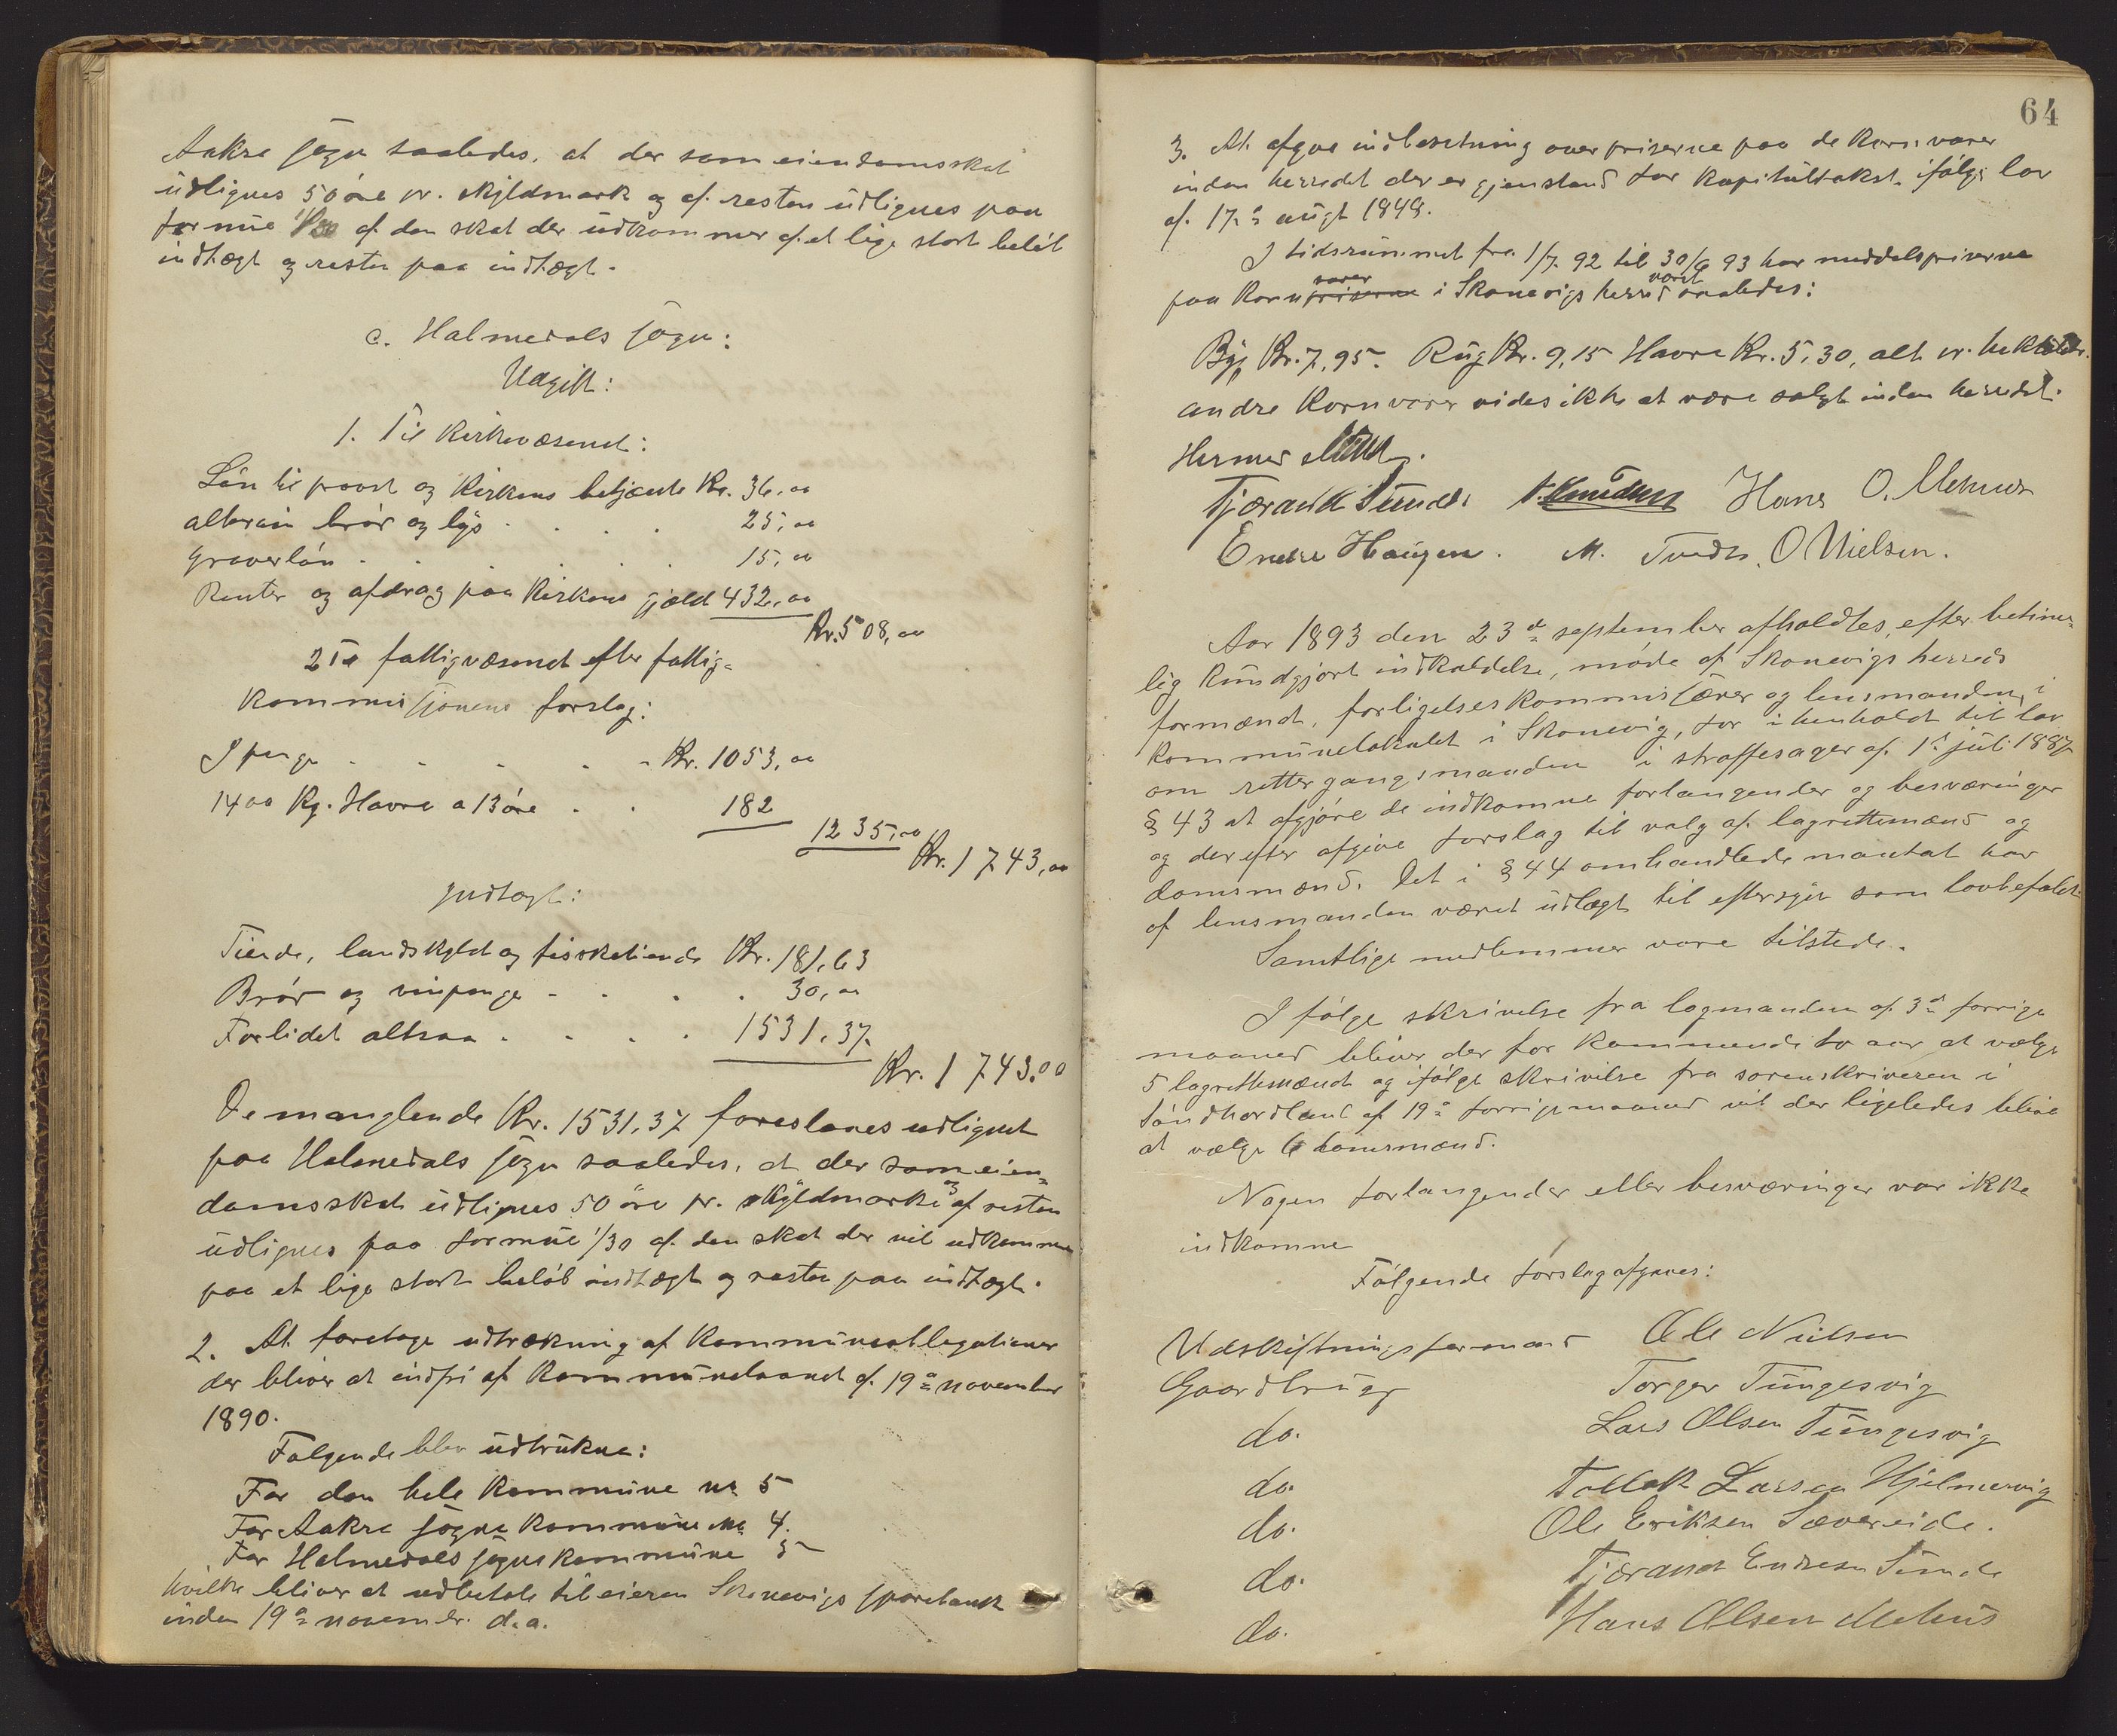 Aakre sogn saaledes, at der som eiendomsskat
udlignes 50 øre pr. skyldmark og af resten udlignes paa
formue 1/30 af den skat der udkommer af et lige stort beløb
indtægt og resten paa indtægt.
c. Holmedals sogn:
Udgift:
1. Til Kirkevæsenet:
Løn til provst og Kirkens betjente Kr. 36,00
altervin brød og lys . . . . 25,00
Graverløn . . . . . . 15,00
Renter og afdrag paa Kirkens gjæld 432,00
Kr. 508,00
2 Til fattigvæsenet efter fattig-
Kommissjonens forslag:
I penge . . . . . . Kr. 1053,00
1400 Kg. Havre a 13 øre . . 182
1235,00
Kr. 1743,00
Indtægt:
Tiende, landskyld og fisketiende Kr. 181,63
Brød og vinpenge . . . . 30,00
Forlidet altsaa . . . . 1531,37
Kr. 1743.00
De manglende Kr. 1531,37 foreslaaes udlignet
paa Holmedals sogn saaledes, at der som eien-
domsskat udlignes 50 øre pr. skyldmark og af resten
udlignes paa formue 1/30 af den skat der vil udkomme
paa et lige stort beløb indtægt og resten paa indtægt.
2. At foretage udtrækning af Kommuneobligationer
der bliver at indfri af Kommunelaanet af 19de november
1890.
Følgende blev udtrukne:
For den hele Kommune no 5
For Aakre sogns kommune no 4.
For Holmedals sogns kommune 5
hvilke bliver at udbetale til eieren Skonevigs sparebank
inden 19de novembr. d.a.
64
3. At afgive indberetning over priserne paa de kornvarer
inden herredet der er gjenstand for kapitultakst. ifølge lov
af 17de augt 1848.
I tidsrummet fra 1/7 92 til 30/6 93 har middelspriserne
paa Kornpriserne varer i Skonevigs herred været saaledes:
Byg Kr. 7,95. Rug Kr. 9,15 Havre Kr. 5,30, alt pr. hektoliter.
andre Kornvarer vides ikke at være solgt inden herredet.
Hermed sluttet.
Tjærand Sunde A. Knudsen Hans O. Mehus
Endre Haugen. M. Tvedte. O Nielsen.
Aar 1893 den 23de september afholdtes, efter betime-
lig kundgjort indkaldelse, møde af Skonevigs herreds
formænd, forligelseskommissærer og lensmanden, i
Kommunelokalet i Skonevig, for i henhold til lov
om rettergangsmaaden i straffesager af 1ste juli 1887
§ 43 at afgjøre de indkomne forlangender og besværinger
og derefter afgive forslag til valg af lagrettemænd og
domsmænd. Det i § 44 omhandlede mantal har
af lensmanden været udlagt til eftersyn som lovbefalet.
Samtlige medlemmer vare tilstede.
I følge skrivelse fra lagmanden af 3de forrige
maaned bliver der for kommende to aar at vælge
5 lagrettemænd og ifølge skrivelse fra sorenskriveren i
Søndhordland af 19de forrige maaned vil der ligeledes blive
at vælge 6 domsmænd.
Nogen forlangender eller besværinger var ikke
indkomne
Følgende forslag afgaves:
Udskiftningsformand Ole Nielsen
Gaardbruger Torger Tungesvig
do. Lars Olsen Tungesvig
do. Tollak Larsen Hjelmervig
do. Ole Eriksen Sævereide.
do. Tjærand Endresen Sunde
do. Hans Olsen Mehus